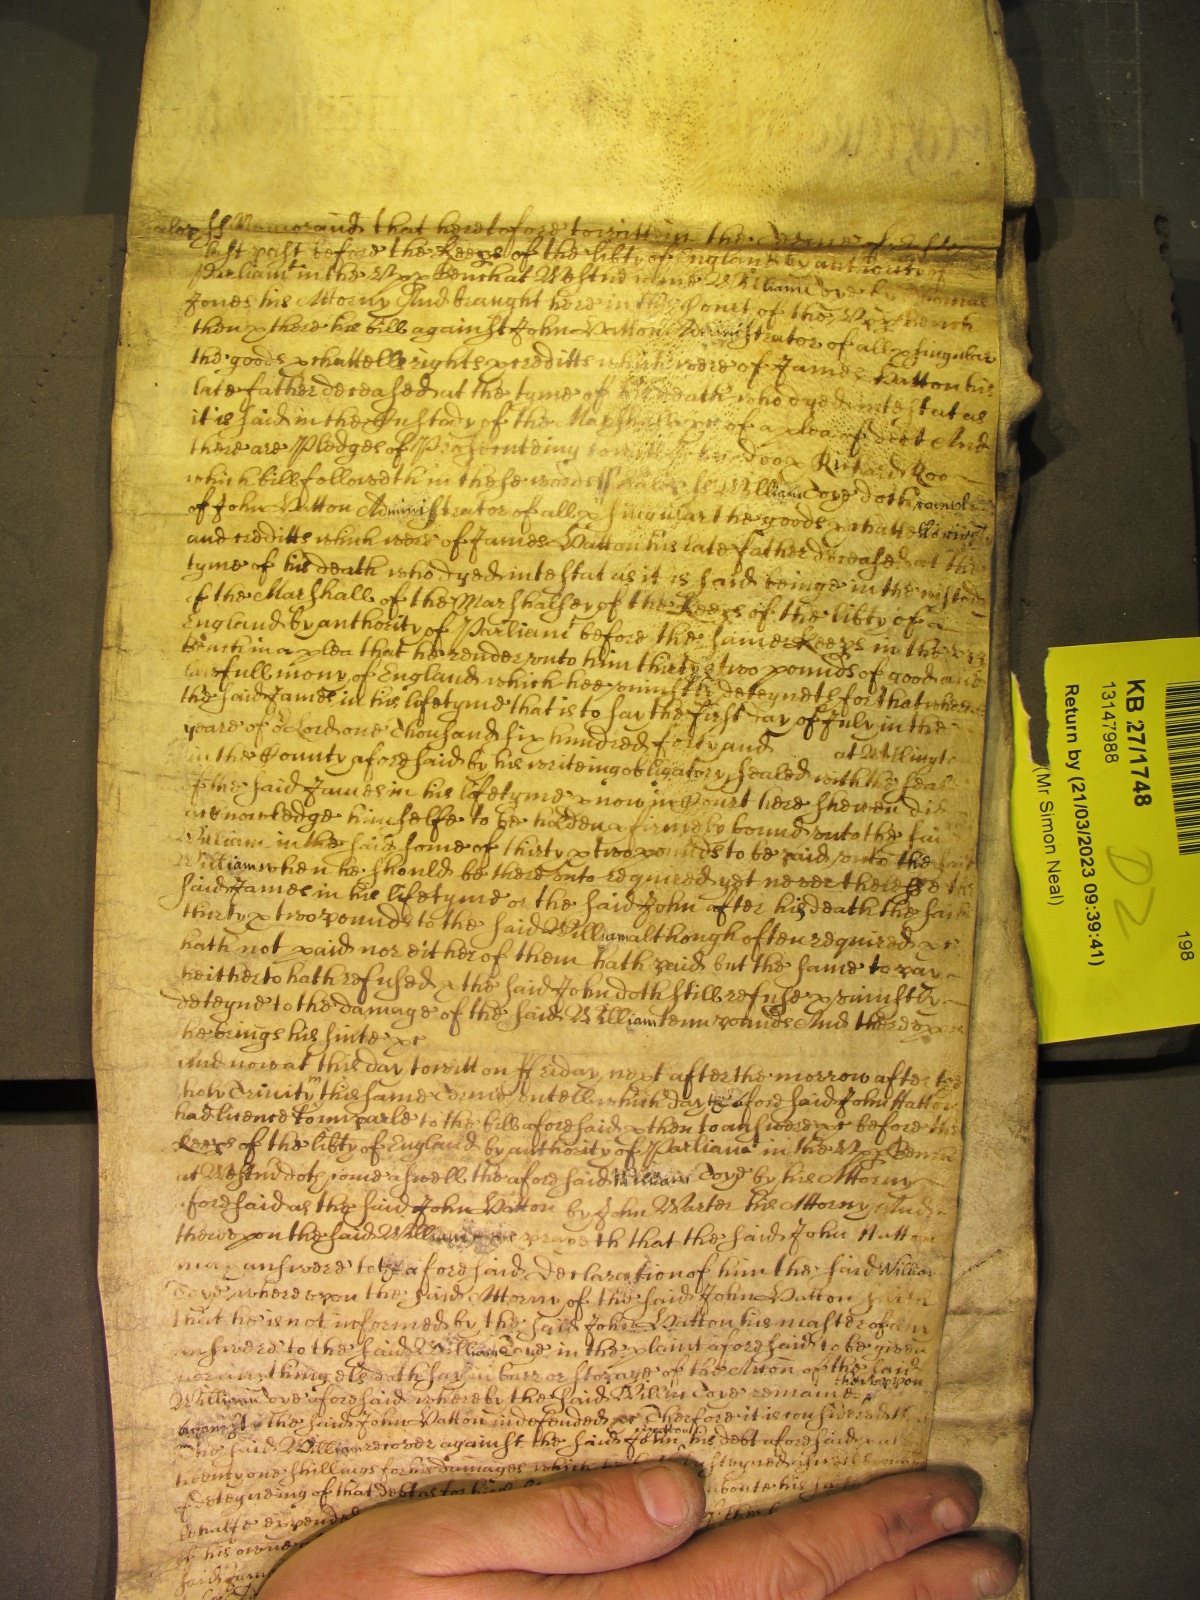 ss Memorand that heretofore to witt in the Terme of
last past before the Keeps of the libty of England by authority of
Parliamt in the Vpp Bench at Westmr came William Coye by Thomas
Jones his Attorny And brought here in the Court of the Vpp Bench
then & there his bill against John Hatton Administrator of all & singular
the goods & chattells rights & creditts which were of James Hatton his
late father deceased at the tyme of his death who dyed intestat as
it is said in the Custody of the Marshall &c of a plea of debt And
there are Pledges of Prosecuteing to witt John Doo & Richard Roo
which bill followeth in these words ss William Coye doth
of John Hatton Administrator of all & singular the goods & chattells rights
and creditts which were of James Hatton his late father deceased at the
tyme of his death who dyed intestat as it is said beinge in the custody
of the Marshall of the Marshalsey of the Keeps of the libty of
England by authority of Parliamt before the same Keeps in the Vpp
Bench in a plea that he render vnto him thirty & two pounds of good and
lawfull mony of England which hee vniustly deteyneth for that where
the said James in his lifetyme that is to say the first day of July in the
yeare of or Lord one Thousand six hundred forty and at
in the County aforesaid by his writeing obligatory sealed with the seale
of the said James in his lifetyme & now in Court here shewen did
acknowledge himselfe to be holden & firmely bound vnto the said
William in the said some of thirty & two pounds to be paid vnto the said
William when he should be therevnto required yet neverthelesse the
said James in his lifetyme or the said John after his death the said
thirty & two pounds to the said William although often required &c
hath not paid nor either of them hath paid but the same to pay
heitherto hath refused & the said John doth still refuse & vniustly
deteyne to the damage of the said William tenn pounds And therevpon
he brings his suite &c
And now at this day to witt on Ffriday next after the morrow after the
holy Trinity this same Terme vntell which day the aforesaid John Hatton
had licence to imparle to the bill aforesaid & then to answere &c before the
Keeps of the libty of England by authority of Parliamt in the Vpp Bench
at Westmr doth come aswell the aforesaid William Coye by his Attorny
aforesaid as the said John Hatton by John Warter his Attorny And
therevpon the said William prayeth that the said John Hatton
may answere to the aforesaid Declaracion of him the said William
Coye wherevpon the said Attorny of the said John Hatton saith
that he is not informed by the said John Hatton his master of any
answere to the said William Coye in the plaint aforesaid to be given
nor any thing els doth say in barr or stopage of the Accon of the said
William Coye aforesaid whereby the said William Coye remaines therevpon
against the said John Hatton vndefended &c Therfore it is considered that
the said William recover against the said John his debt aforesaid &
twenty one shillings for his damages which
of deteyneing of that debt as for his

of his owne
said James
KB 27/1748
13147988
Return by (21/03/2023 09:39:41)
(Mr Simon Neal)
198
D2